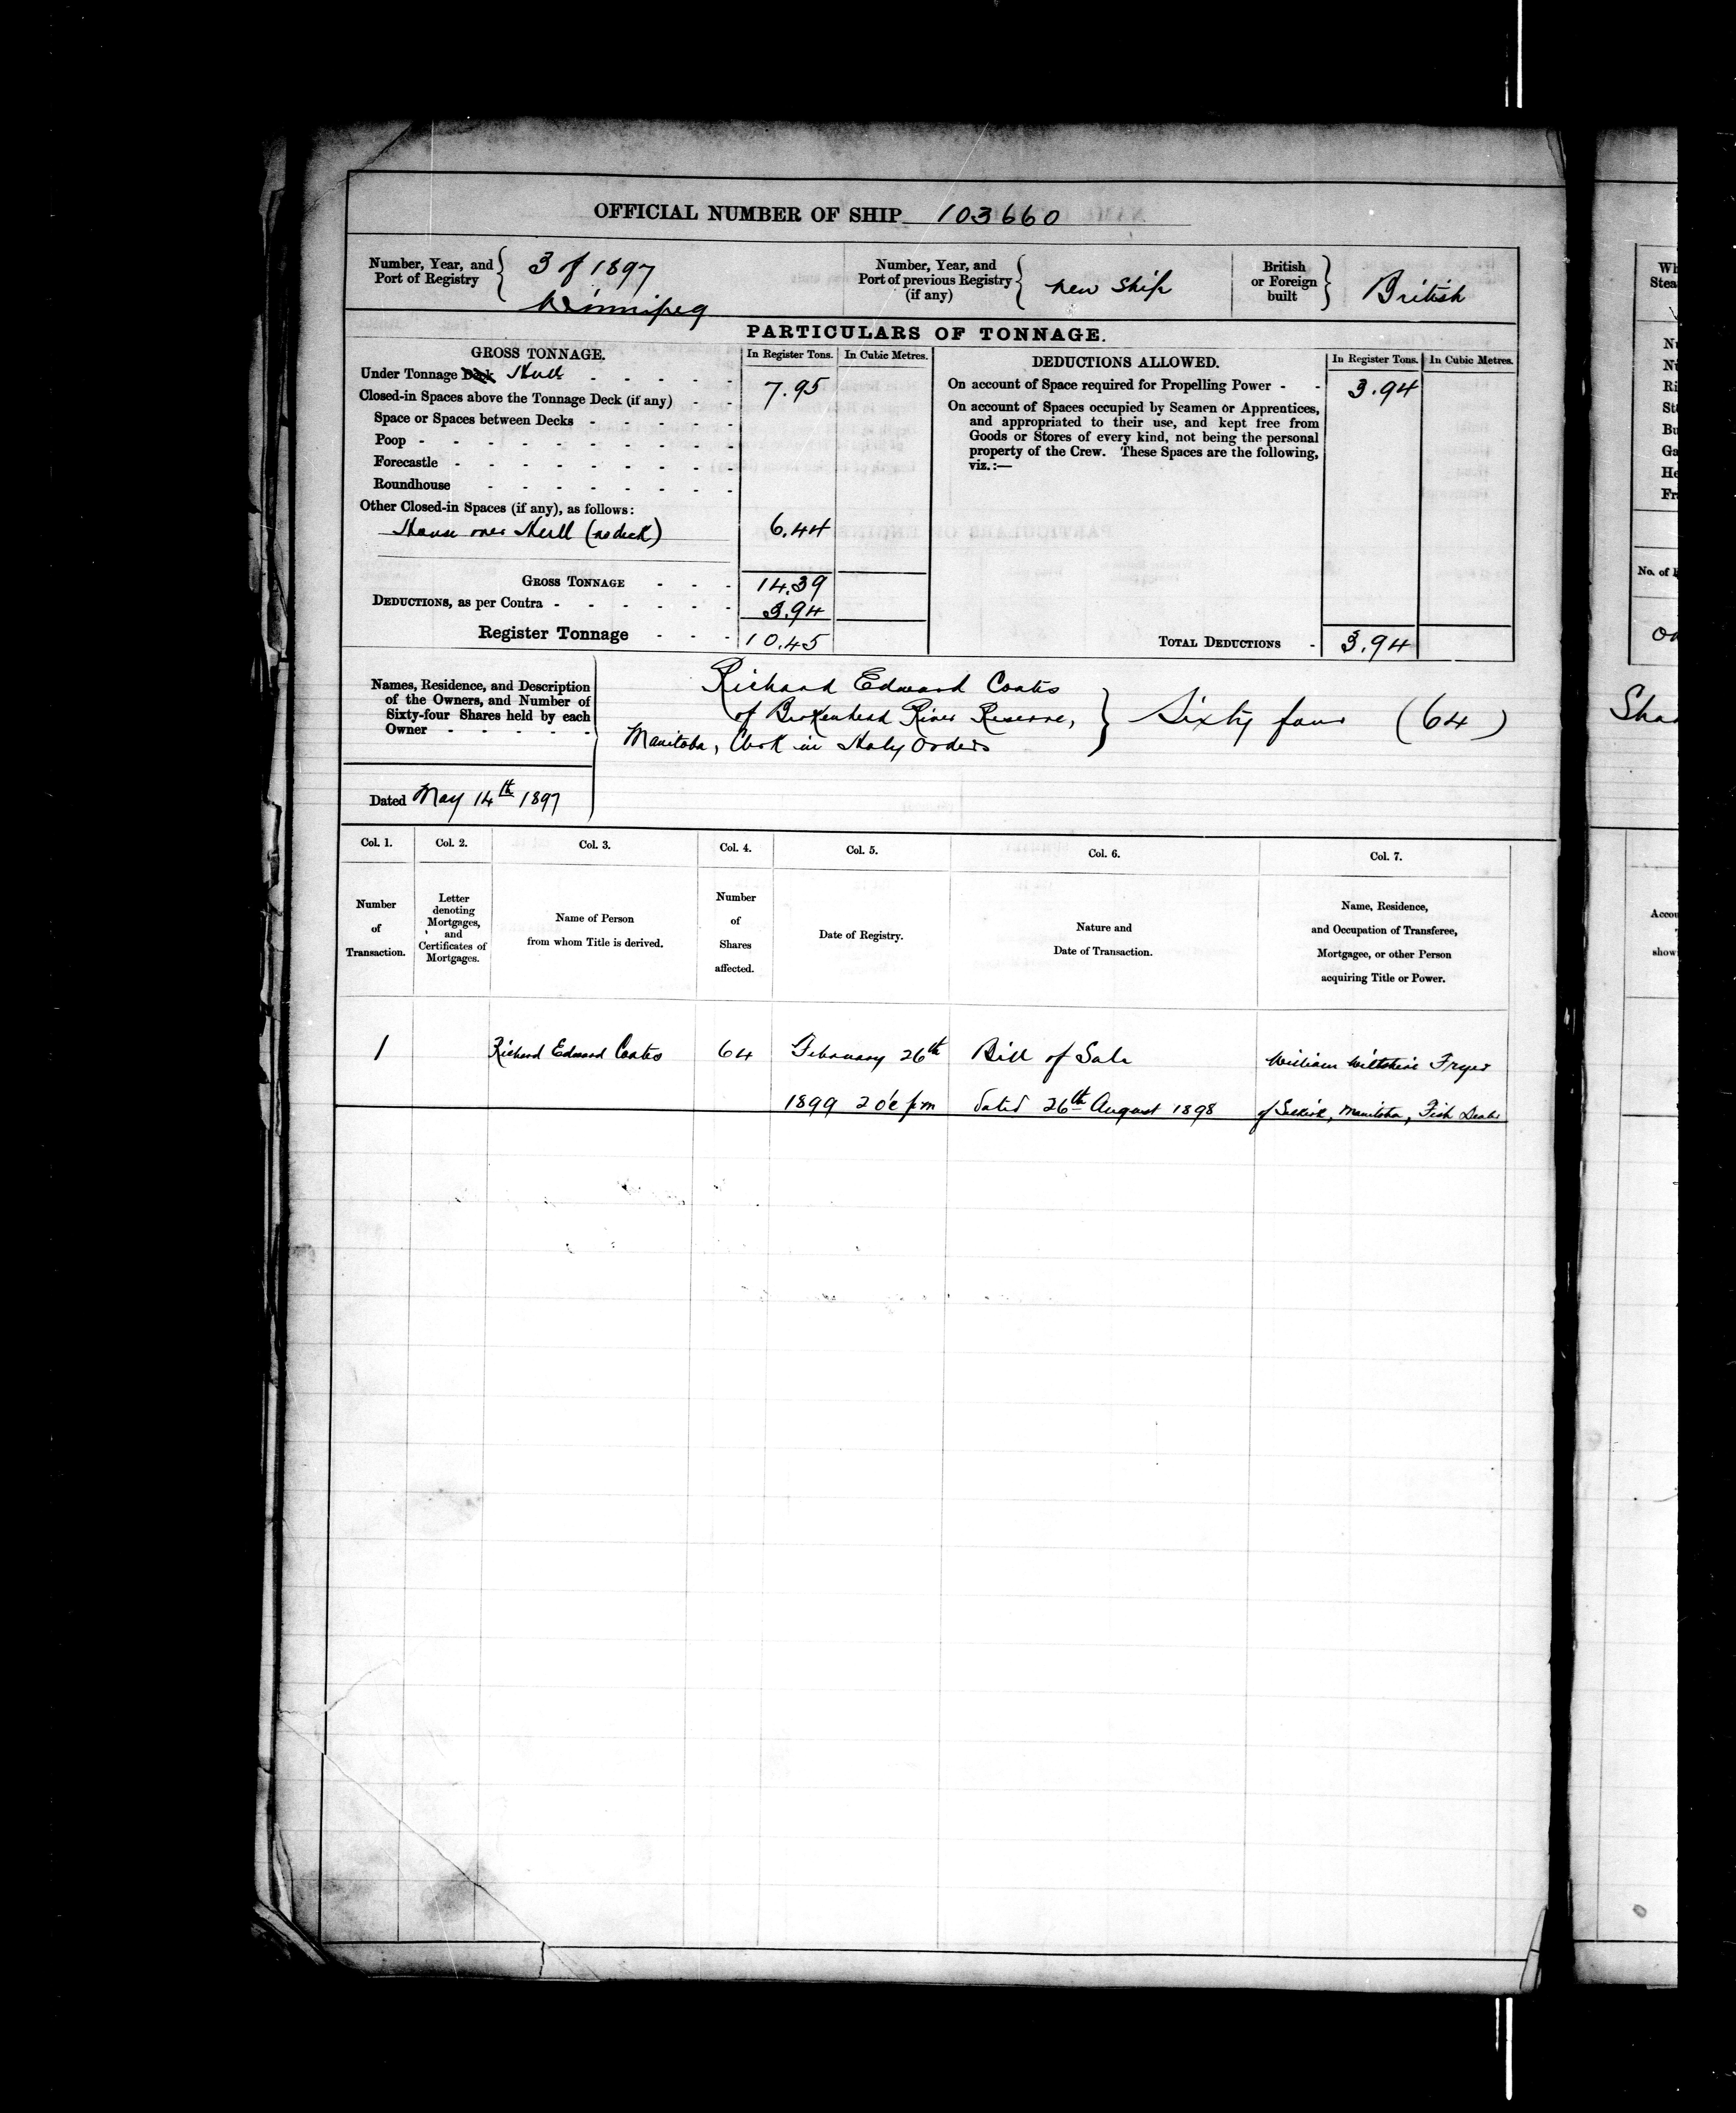 OFFICIAL NUMBER OF SHIP 103660
Number, Year, and Port of Registry { 3 of 1897 Winnipeg
Number, Year, and Port of previous Registry (if any) { new Ship
British or Foreign built } British
PARTICULARS OF TONNAGE.
GROSS TONNAGE. In Register Tons. In Cubic Metres.
Under Tonnage Deck Hull - - - - - 7.95
Closed-in Spaces above the Tonnage Deck (if any) - -
Space or Spaces between Decks - - - - -
Poop - - - - - - - - -
Forecastle - - - - - - - -
Roundhouse - - - - - - -
Other Closed-in Spaces (if any), as follows:
House over Hull (no deck) 6.44
GROSS TONNAGE - - - 14.39
DEDUCTIONS, as per Contra - - - - - - 3.94
Register Tonnage - - - 10.45
DEDUCTIONS ALLOWED. In Register Tons. In Cubic Metres.
On account of Space required for Propelling Power - - 3.94
On account of Spaces occupied by Seamen or Apprentices,
and appropriated to their use, and kept free from
Goods or Stores of every kind, not being the personal
property of the Crew. These Spaces are the following,
viz.:—
TOTAL DEDUCTIONS - 3.94
Names, Residence, and Description
of the Owners, and Number of
Sixty-four Shares held by each
Owner - - - - -
Richard Edward Coates
of Brokenhead River Reserve,
Manitoba, Clerk in Holy Orders
} Sixty four (64)
Dated May 14th 1897
Col. 1. Col. 2. Col. 3. Col. 4. Col. 5. Col. 6. Col. 7.
Number of Transaction.
Letter denoting Mortgages, and Certificates of Mortgages.
Name of Person from whom Title is derived.
Number of Shares affected.
Date of Registry.
Nature and Date of Transaction.
Name, Residence, and Occupation of Transferee, Mortgagee, or other Person acquiring Title or Power.
1 Richard Edward Coates 64 February 26th Bill of Sale William Wiltshire Fryer
1899 2 o'c pm dated 26th August 1898 of Selkirk, Manitoba, Fish Dealer
Wh
Stea
Nu
Ri
Bu
Ga
He
Fr
No. of
Shar
Accou
show